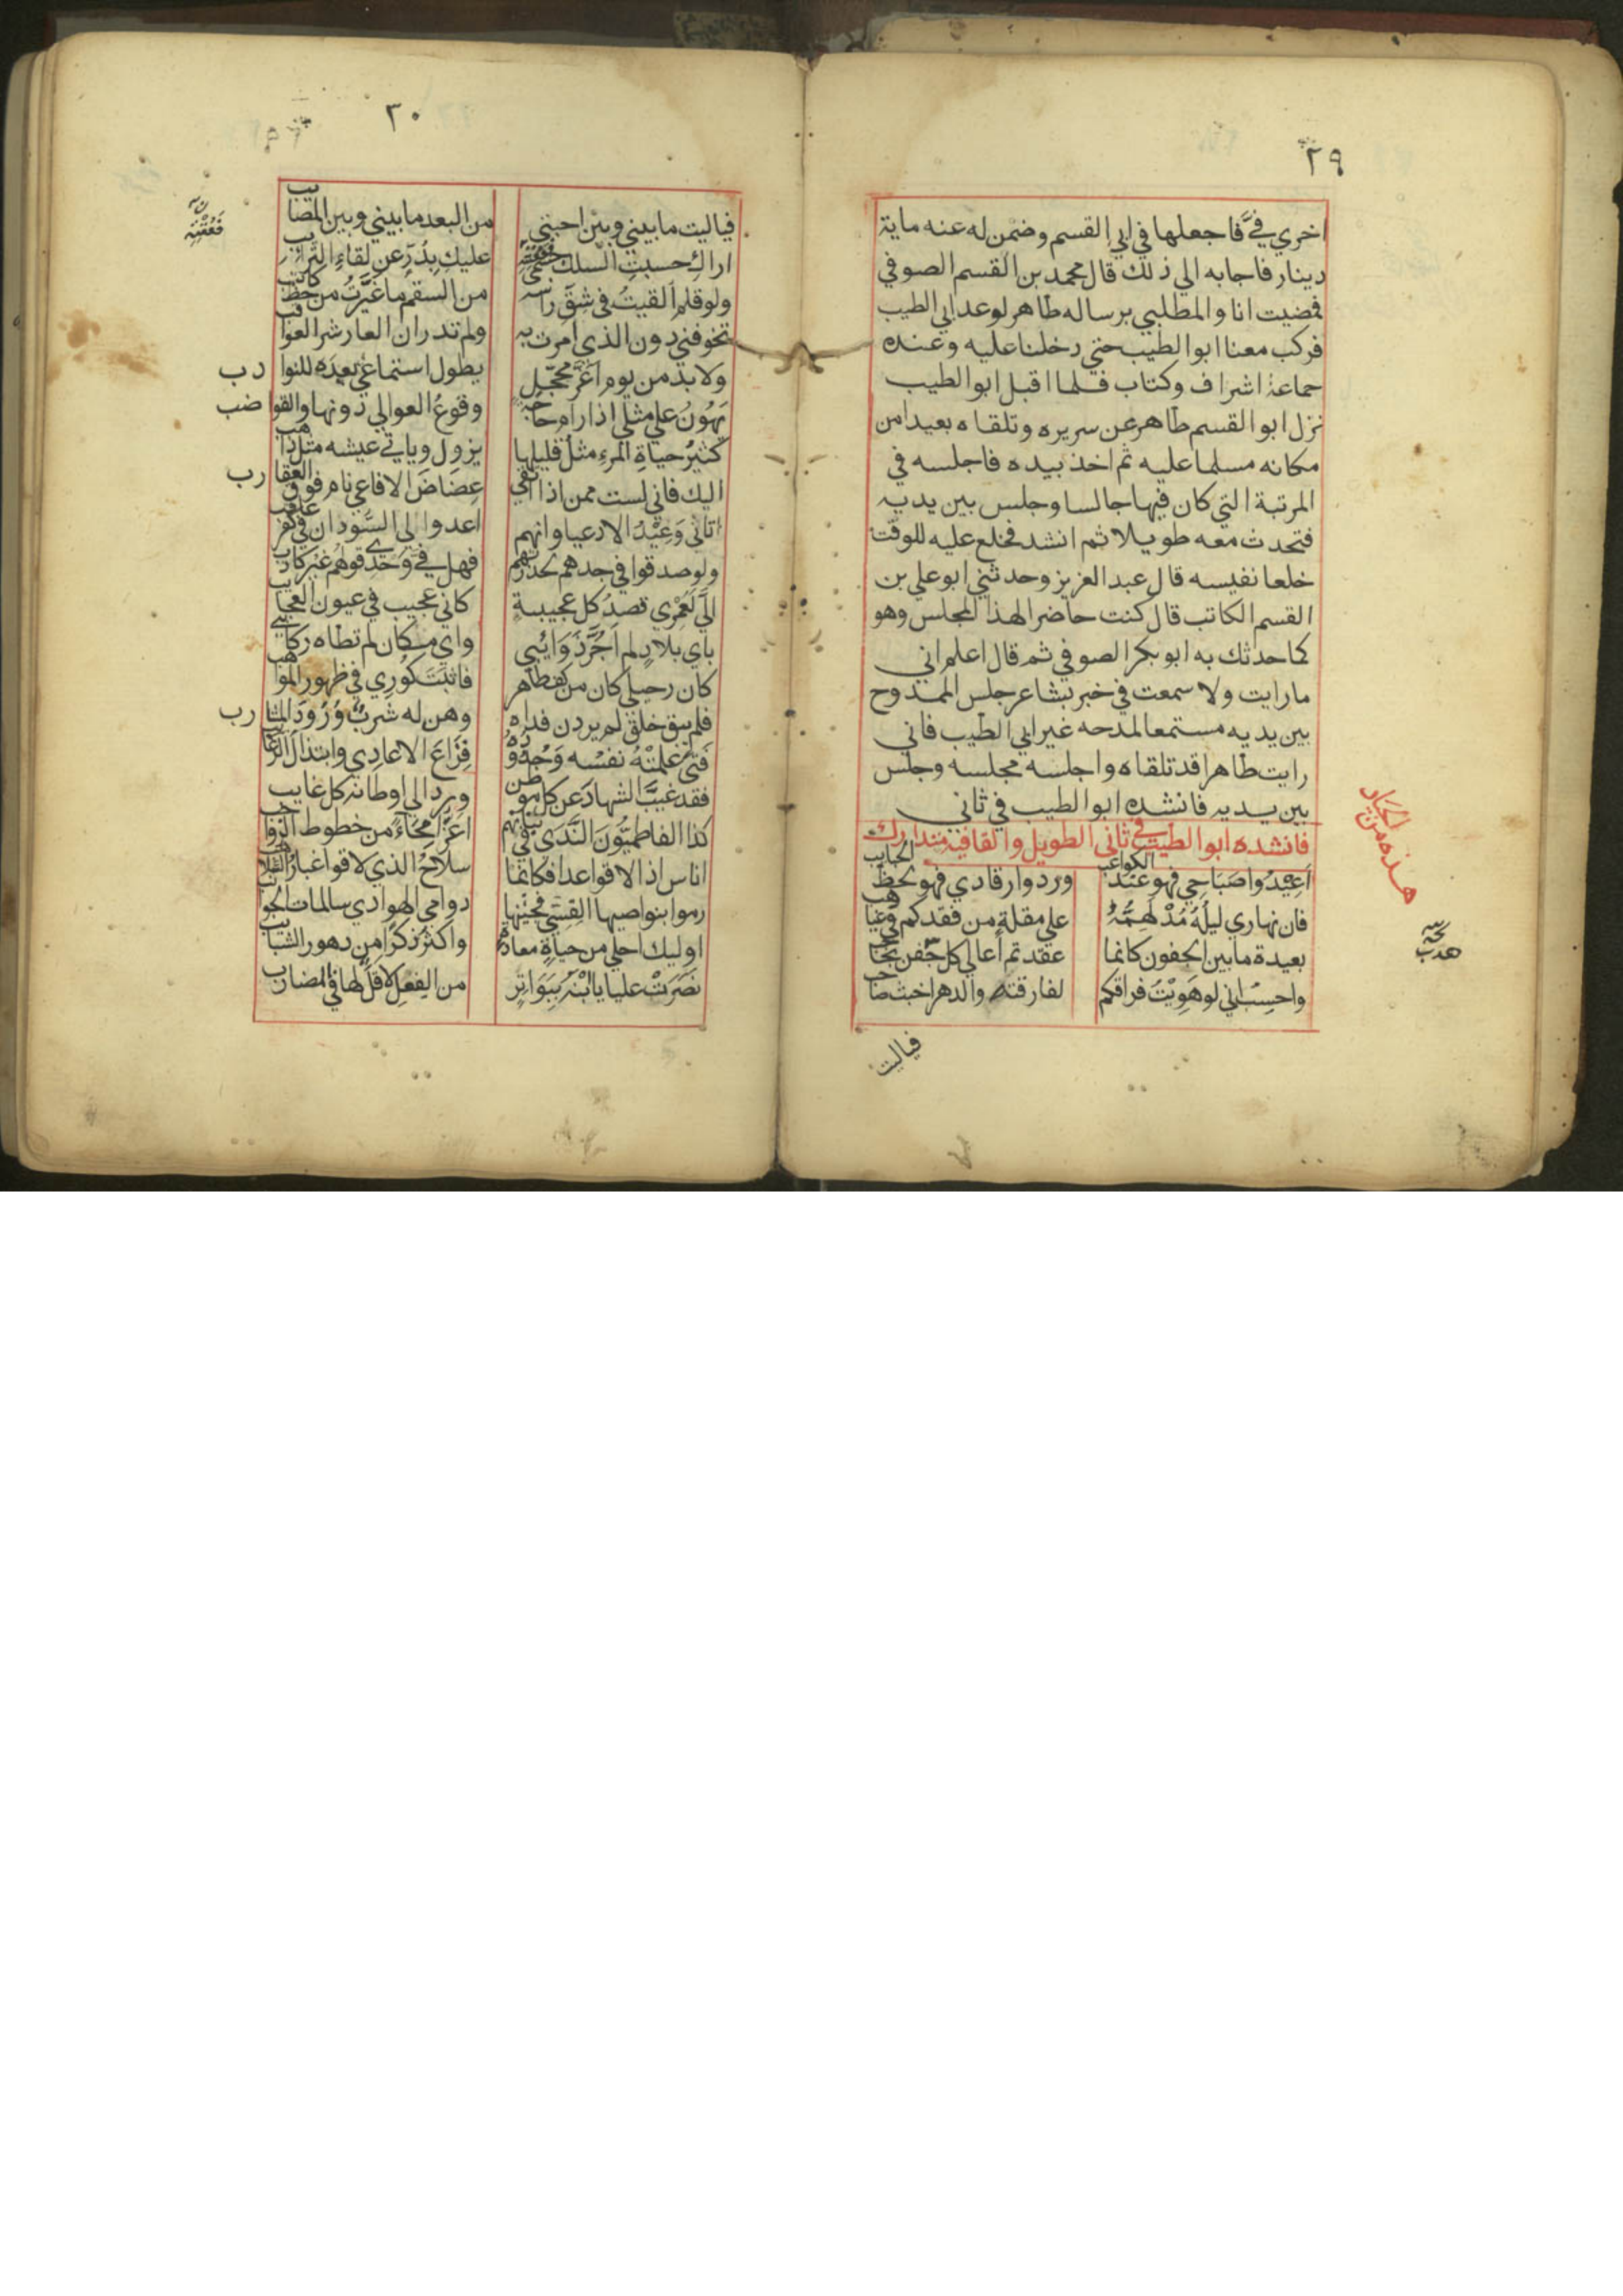 ٢٩
اخري فيَّ فاجعلها في ابي القسم وضمن له عنه ماية
دينار فاجابه الي ذلك قال محمد بن القسم الصوفي
فمضيت انا والمطلبي برساله طاهر لوعد ابي الطيب
فركب معنا ابوا لطيب حتي دخلنا عليه وعنده
جماعة اشراف وكتاب فلما اقبل ابوا لطيب
نزل ابو القسم طاهر عن سريره وتلقاه بعيدا من
مكانه مسلما عليه ثم اخذ بيده فاجلسه في
المرتبة التي كان فيها جالسا وجلس بين يديه
فتحدث معه طويلا ثم انشد فخلع عليه للوقت
خلعا نفيسه قال عبد العزيز وحدثني ابو علي بن
القسم الكاتب قال كنت حاضرا لهذا المجلس وهو
كما حدثك به ابو بكر الصوفي ثم قال اعلم اني
ما رايت ولا سمعت في خبر بشاعر جلس الممدوح
بين يديه مستمعا لمدحه غير ابي الطيب فاني
رايت طاهرا قد تلقاه واجلسه مجلسه وجلس
بين يديه فانشده ابوا لطيب في ثاني
فانشده ابوا لطيب في ثاني الطويل والقافيه متدارك
اَعِيْدُوا صَبَاحِي فهو عند الكواعب وردوا رقادي فهو لحظ الحبايب
فان نهاري ليلةٌ مُدْلَهِمَّةٌ علي مقلةٍ من فقدكم في غياهب
بعيدة ما بين الجفون كانما عقدتم اعالي كل جفن بحاجب
واحسب اني لو هَوِيْتُ فراقكم لفارقته والدهر اخبث صاحب
هذه من الجياد
هدب
فياليت
٣٠
فياليت ما بيني وبين احبتي من البعد ما بيني وبين المصايب
اراكِ حسبتِ السلك جسمي فعقته عليكِ بدُرٍّ عن لقاءِ الترائب
ولو قلم اُلقيتُ في شِقّ راسه من السقم ما غيَّرتُ من خط كاتب
تخوفني دون الذي امرت به ولم تدر ان العار شر العواقب
ولا بد من يوم اغرَّ محجّلٍ يطول استماعي بعده للنوادب
يَهُونُ علي مثلي اذا رام حاجة وقوعُ العوالي دونها والقواضب
كثيرُ حياةِ المرءِ مثلُ قليلها يزول وياتي عيشه مثل ذاهب
اليك فاني لست ممن اذا اتقي عِضاضَ الافاعي نام فوق العقارب
اتاني وَعِيْدُ الادعيا وانهم اعدوا لي السُّودان في كفر عاقب
ولو صدقوا في جدهم لحذرتهم فهل فيَّ وَحْدِي قولهم غير كاذب
اليَّ لَعَمْرِي قصدُ كل عجيبةٍ كاني عجيب في عيون العجايب
باي بلادٍ لم اَجُرَّ ذَوَائبي واي مكان لم تطاه ركائبي
كان رحيلي كان من كف طاهر فاثبتَ كُورِي في ظهور المواهب
فلم يبق خلق لم يردن فناه وهن له شربٌ وُرُودَ المشارب
فَتًى علمَتْهُ نفسُه وَجُدُودُهُ قِرَاعَ الاعادِي وابتذالَ الرغائب
فقد غيَّبَ الشهادَ عن كل موطن ورد الي اوطانه كل غايب
كذا الفاطميّونَ النَّدَى في بنانهم اعزُّ امِّحَاءً من خطوط الرواجب
اناس اذا لاقوا عدا فكانما سلاحُ الذي لاقوا غبارُ السلاهب
رموا بنواصيها القِسِيَّ فجئنها دوامي الهوادي سالمات الجوانب
اوليك احلي من حياةٍ معادةٍ واكثرُ ذكرًا من دهور الشبايب
نَصَرْتَ عليا يا ابْنَهُ بِبَوَاتِرٍ من الفِعلِ لا فَلٌّ لها في المضارب